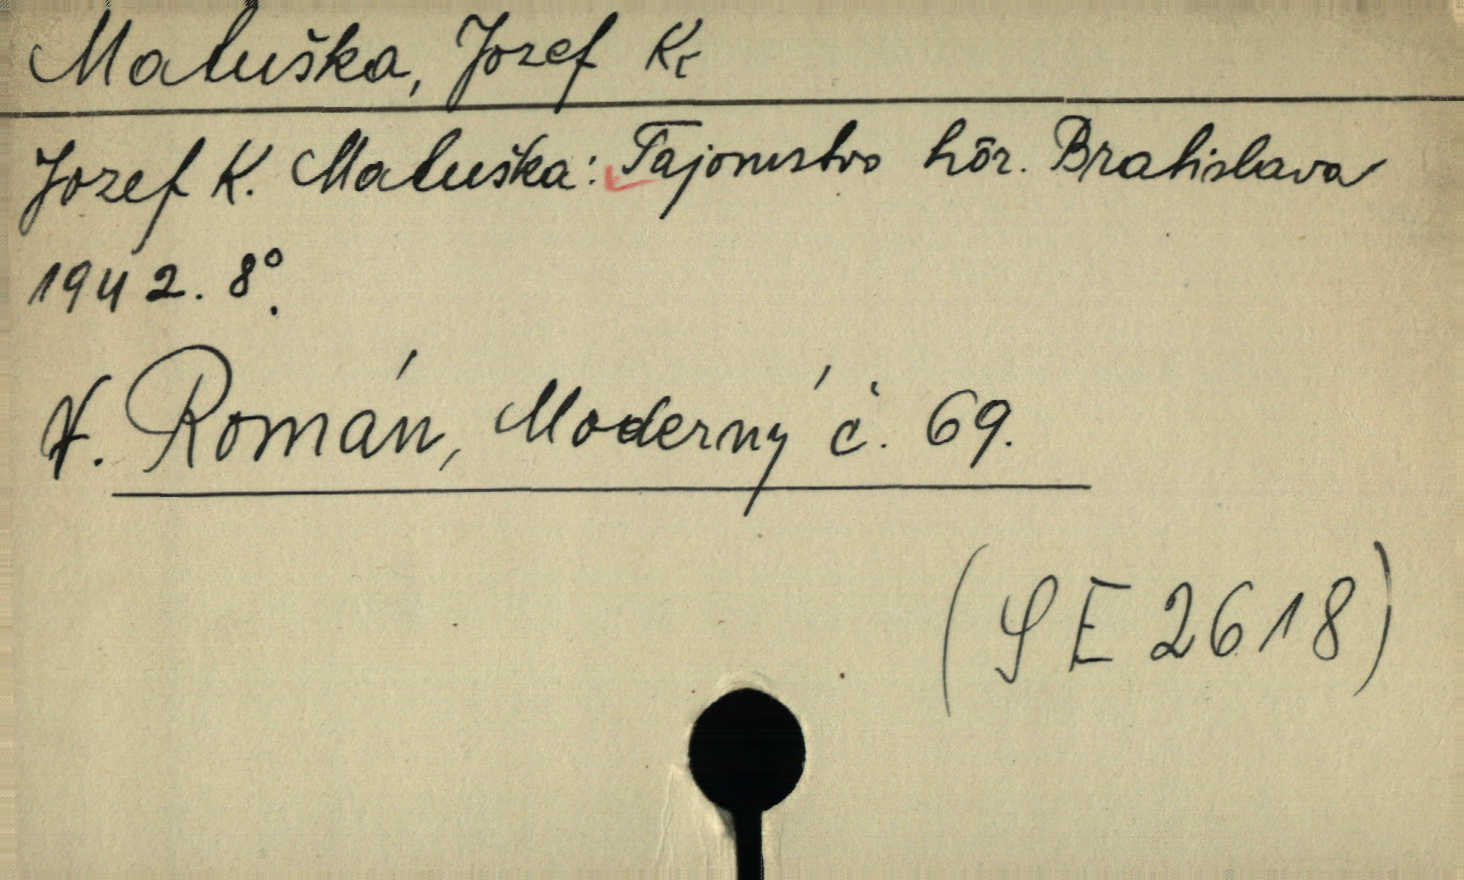 Matuška, Jozef K.
Jozef K. Matuška: Tajomstvo hôr. Bratislava
1942. 8°.
V. Román, Moderný č. 69.
(SE 2618)